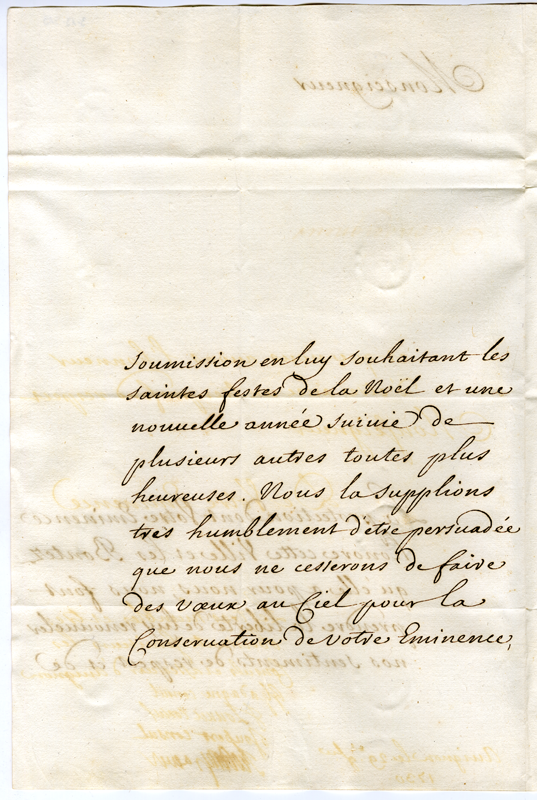 soumission en luy souhaitant les
saintes festes de la Noël et une
nouuelle année suiuie de
plusieurs autres toutes plus
heureuses. Nous la supplions
tres humblement d'etre persuadée
que nous ne cesserons de faire
des vœux au Ciel pour la
Conseruation de Votre Eminence,